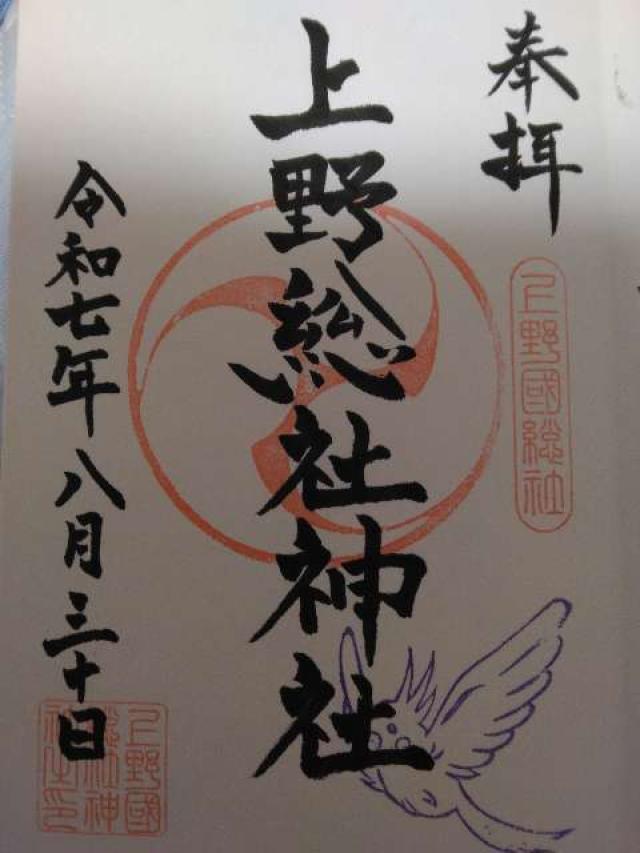 奉拝
上野國総社
上野総社神社
令和七年八月三十日
上野國
総社神
社之印